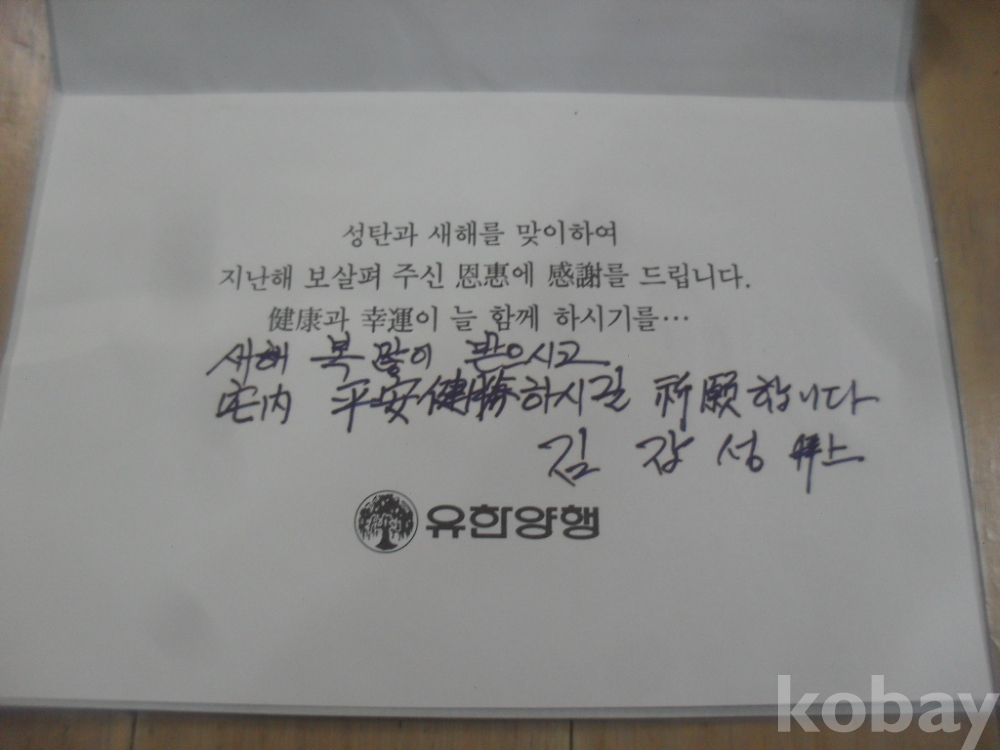 성탄과 새해를 맞이하여
지난해 보살펴 주신 恩惠에 感謝를 드립니다.
健康과 幸運이 늘 함께 하시기를…
새해 복 많이 받으시고
宅内 平安健勝하시길 祈願합니다
김 갑 성 拜上
유한양행
kobay